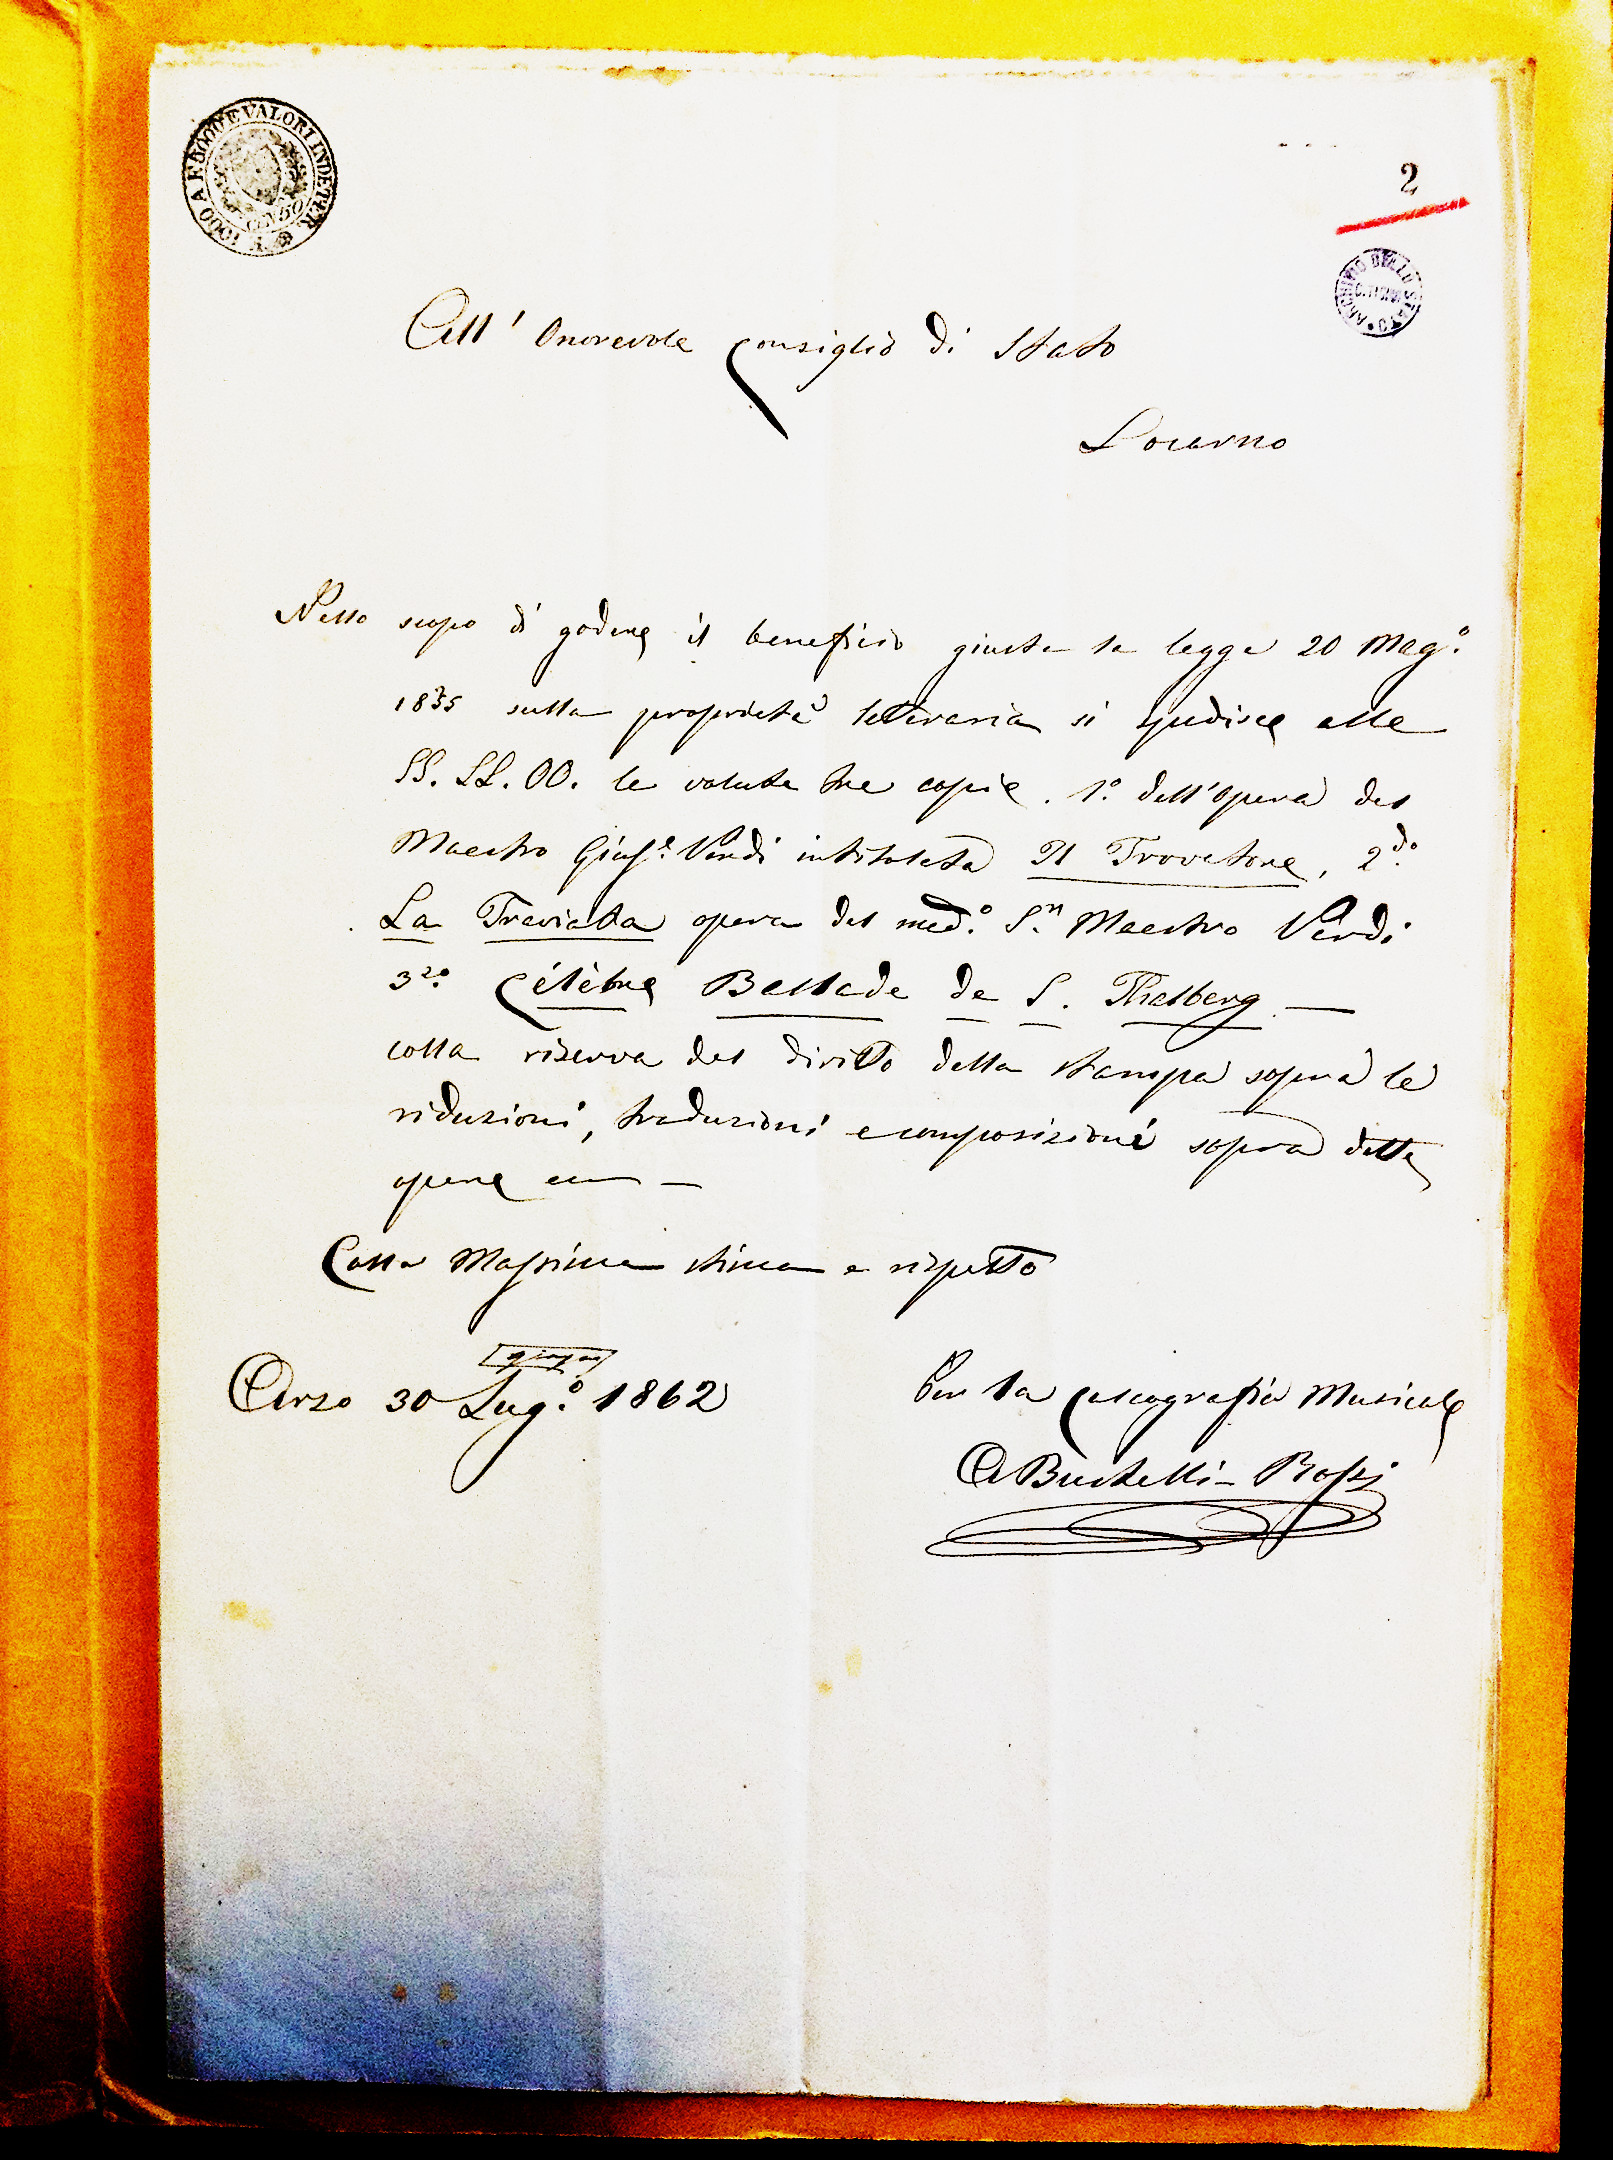 DA F 1000 A F 5000 E VALORI INDETER.
C.N 50
2
ARCHIVIO DELLO STATO
All' Onorevole Consiglio di Stato
Locarno
Nello scopo di godere il beneficio giusta la legge 20 Mag.º
1835 sulla proprietà letteraria si spedisce alle
SS. LL. OO. le volute tre copie. 1.º dell'opera del
Maestro Gius.e Verdi intitolata Il Trovatore, 2.do
La Traviata opera del med.º S.r Maestro Verdi
3.zo Célèbre Ballade de S. Thalberg —
colla riserva del diritto della stampa sopra le
riduzioni, traduzioni e composizioni sopra dette
opere ecc —
Colla Massima stima e rispetto
giugno
Arzo 30 Lug.º 1862
Per la Calcografia Musicale
C Bustelli - Rossi